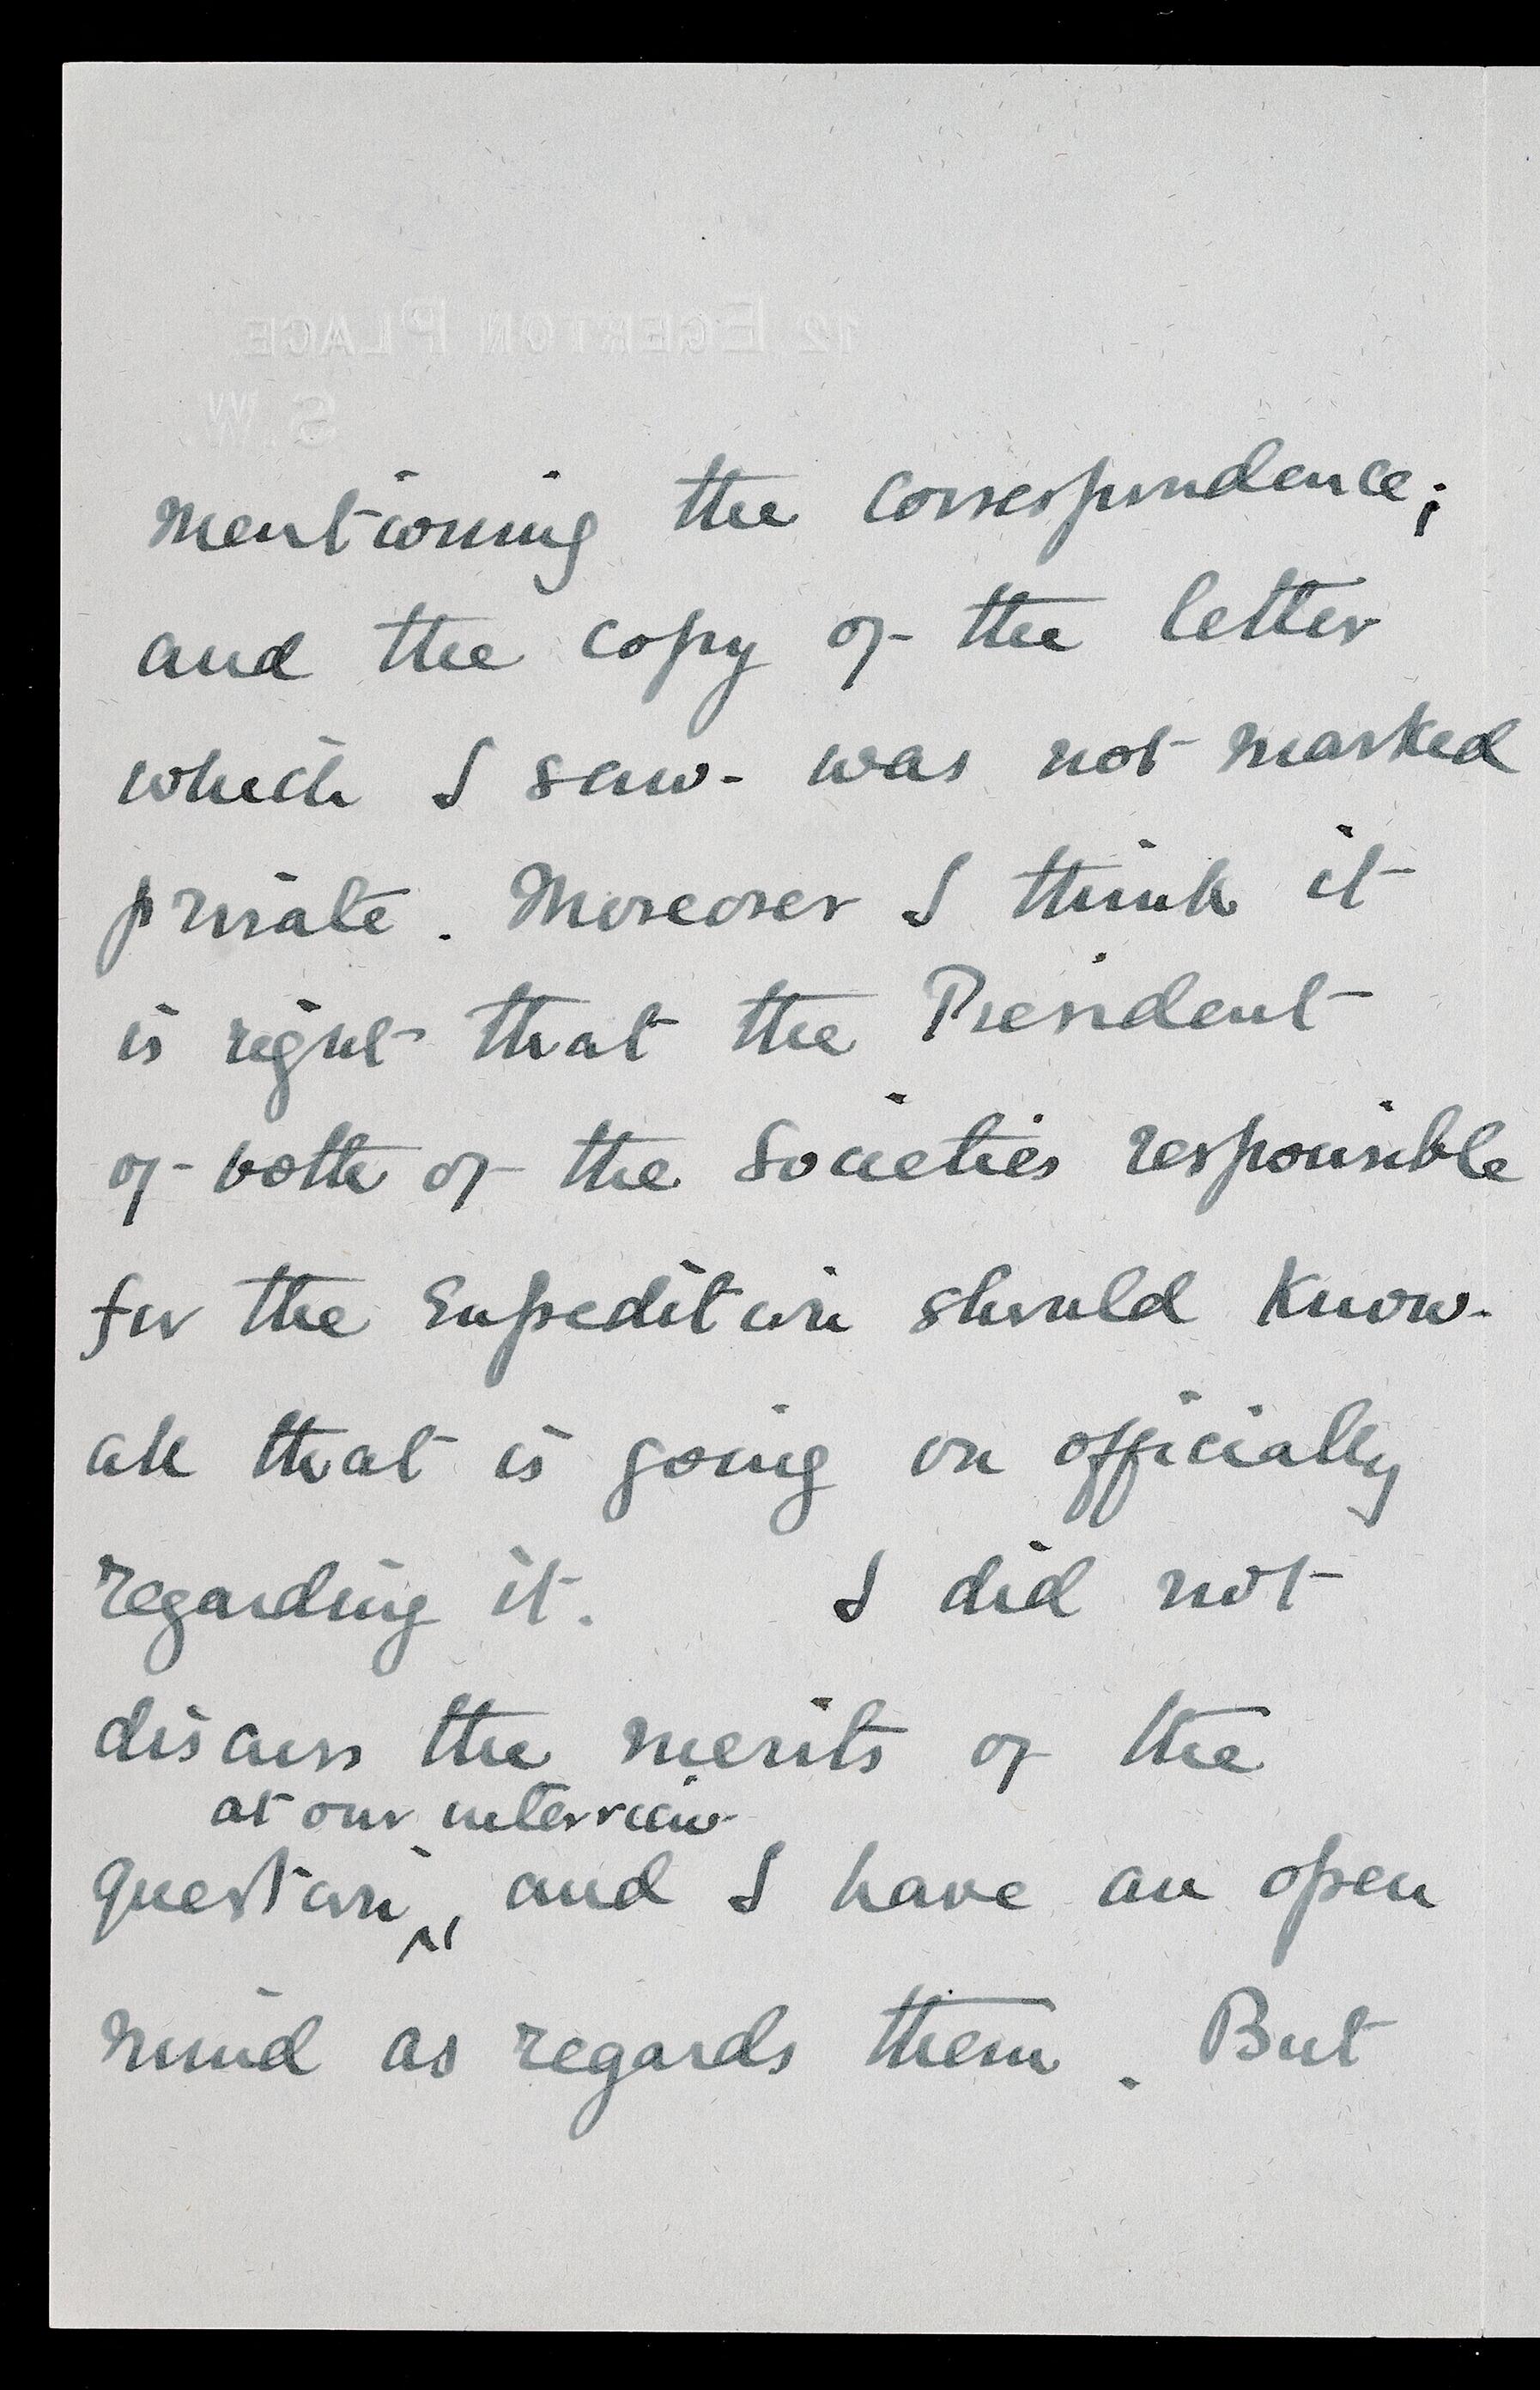 12 EGERTON PLACE
S.W.
mentioning the correspondence;
and the copy of the letter
which I saw was not marked
private. Moreover I think it
is right that the President
of both of the Societies responsible
for the Expedition should know
all that is going on officially
regarding it. I did not
discuss the merits of the
at our interview
question, and I have an open
mind as regards them. But